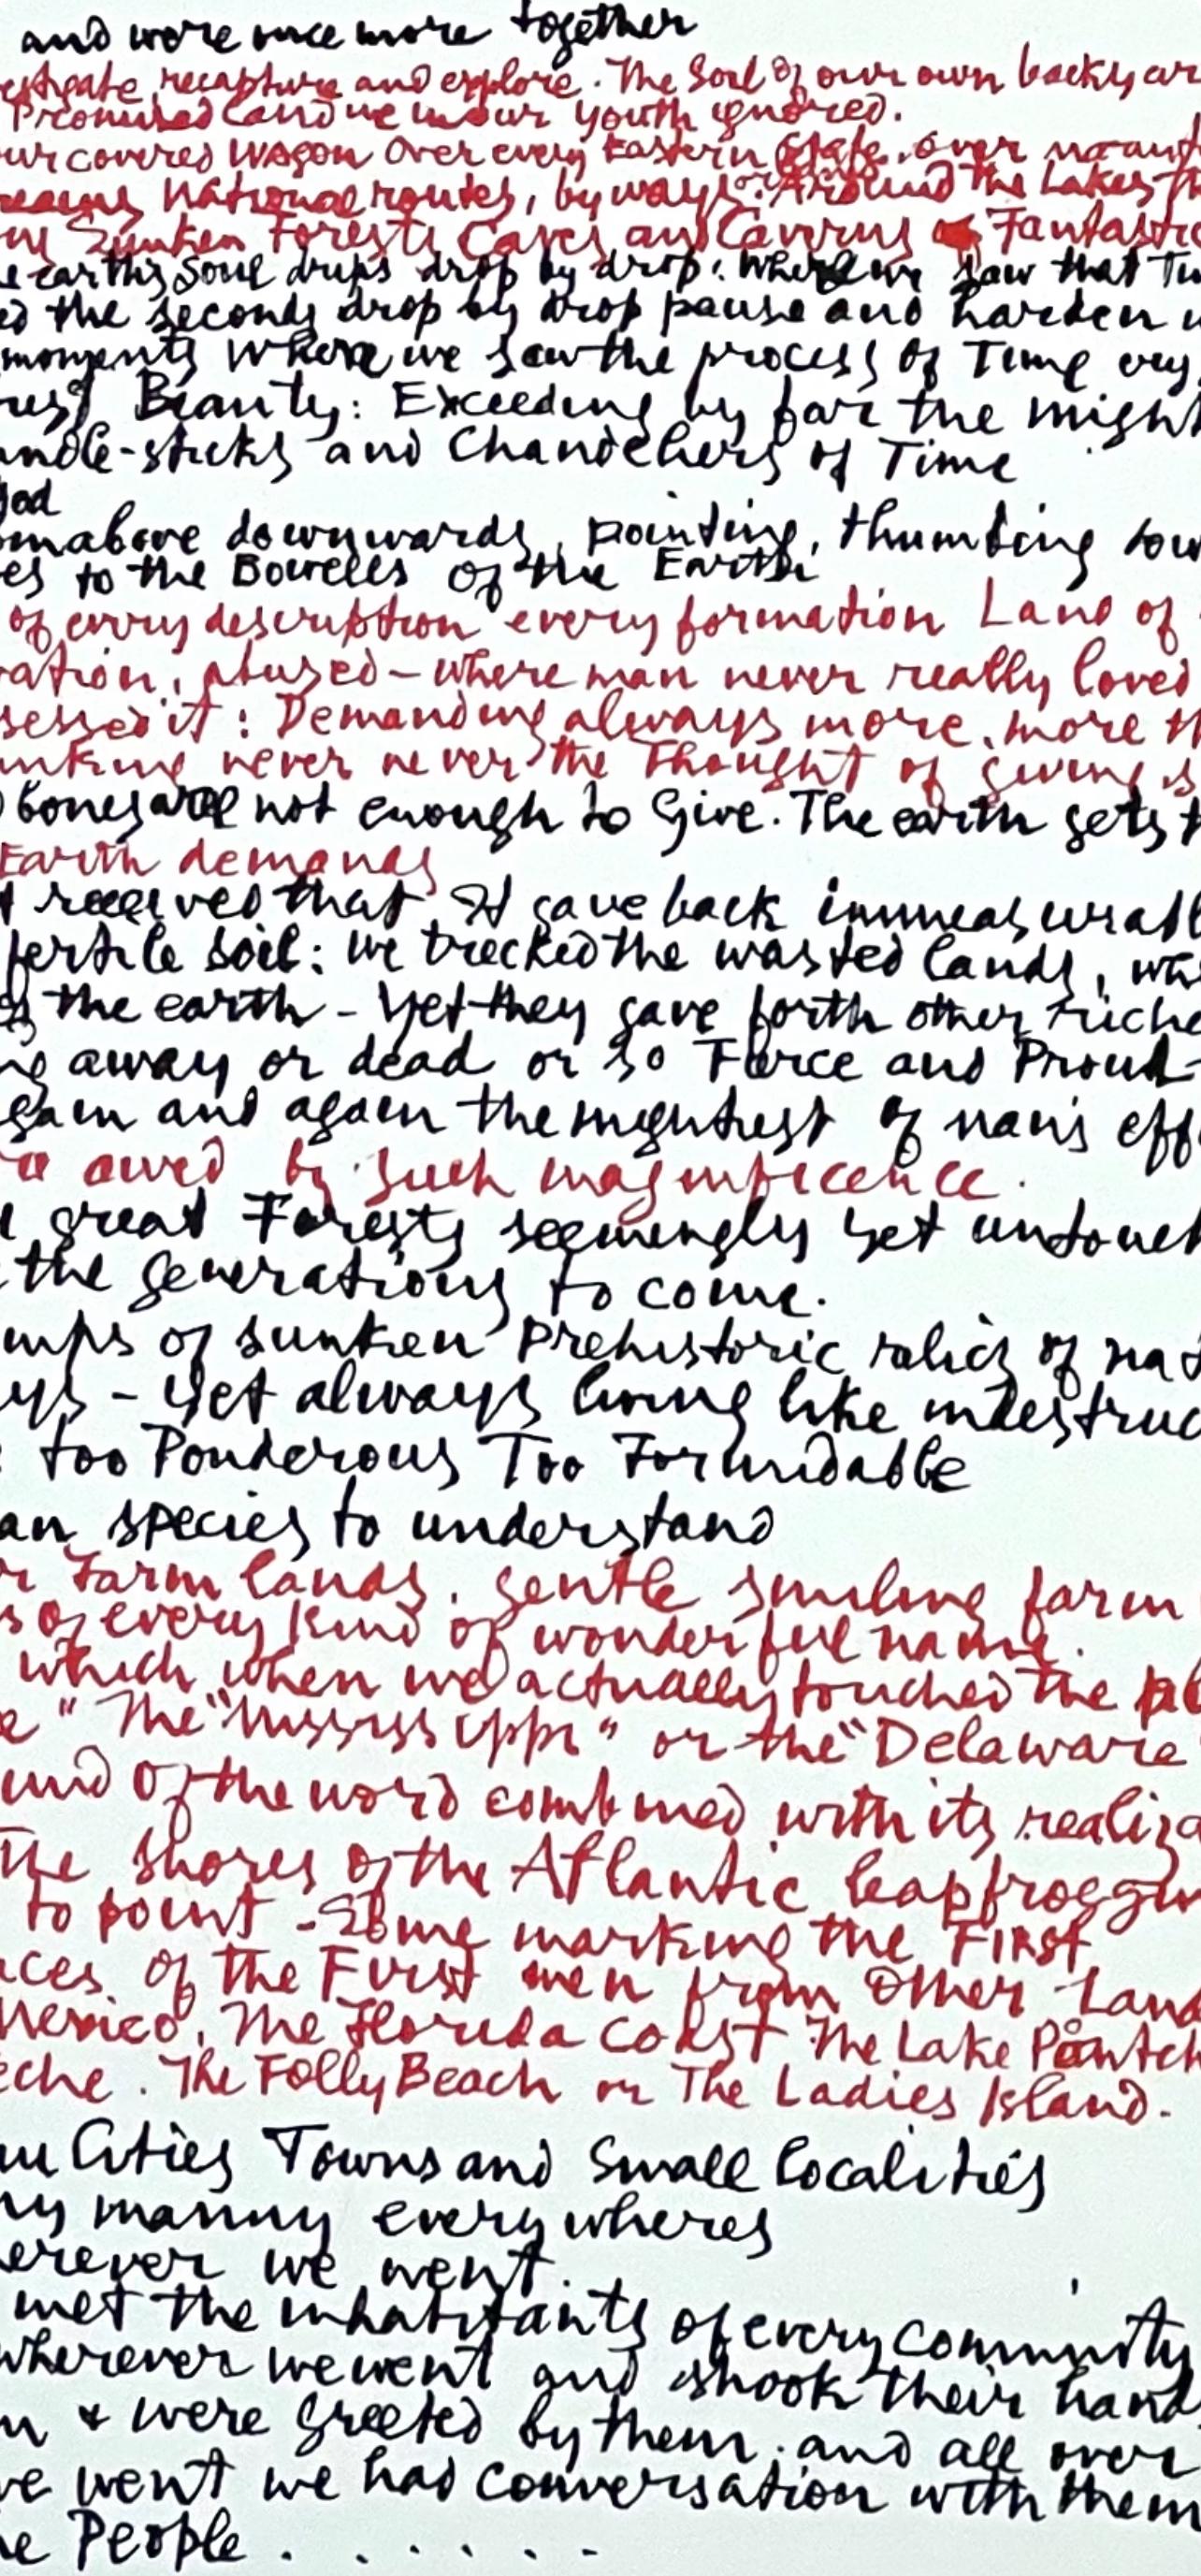 and were once more together
estigate, recapture and explore. The Soil of our own backyar
Promised Land we in our youth ignored.
our covered Wagon Over every Eastern State, over
National routes, by ways or Around the Lakes
Sunken Forests Caves and Caverns Fantastic
e earths Soul drips drop by drop: Where we saw that Ti
ed the seconds drop by drop pause and harden
moments Where we saw the process of Time
rest Beauty: Exceeding by far the might
andle-sticks and Chandeliers of Time
God
om above downwards, pointing, thumbing
es to the Bowells of the Earth
of every description every formation Land of
vation, abused - where man never really loved
sessed it: Demanding always more, more th
inking never never the thought of giving is
bones are not enough to Give. The earth gets t
Earth demands
t received that It gave back immeasurabl
fertile soil: we trecked the wasted lands, wa
the earth - Yet they gave forth other riche
ng away or dead or so Fierce and Proud-
gain and again the mightiest of man's eff
awed by such magnificence.
great Forests seemingly yet untouch
the generations to come.
mps of sunken Prehistoric relics of nat
ys - Yet always living like indestruc
too Ponderous Too Formidable
an species to understand
r Farm lands. gentle smiling farm
s of every kind of wonderful name.
which when we actually touched the
" The "Mississippi" or the "Delaware"
und of the word combined with its realiza
The shores of the Atlantic leapfroggin
to point - Some marking the First
aces of the First men from Other Land
Mexico, The Florida Coast The Lake Pontch
eche. The Folly Beach or The Ladies Island.
Cities Towns and Small localities
ny manny everywheres
erever we went.
met the inhabitants of every community
wherever we went and shook their hands
& were greeted by them. and all over
we went we had conversation with them
he People . . . . . .